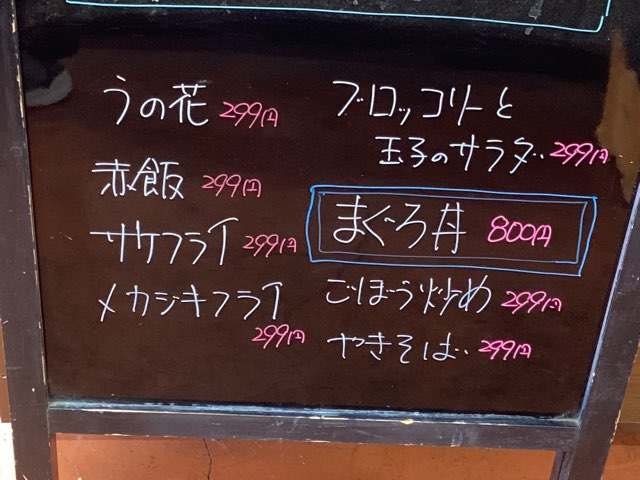 うの花 299円
赤飯 299円
サケフライ 299円
メカジキフライ
299円
ブロッコリーと
玉子のサラダ 299円
まぐろ丼 800円
ごぼう炒め 299円
やきそば 299円